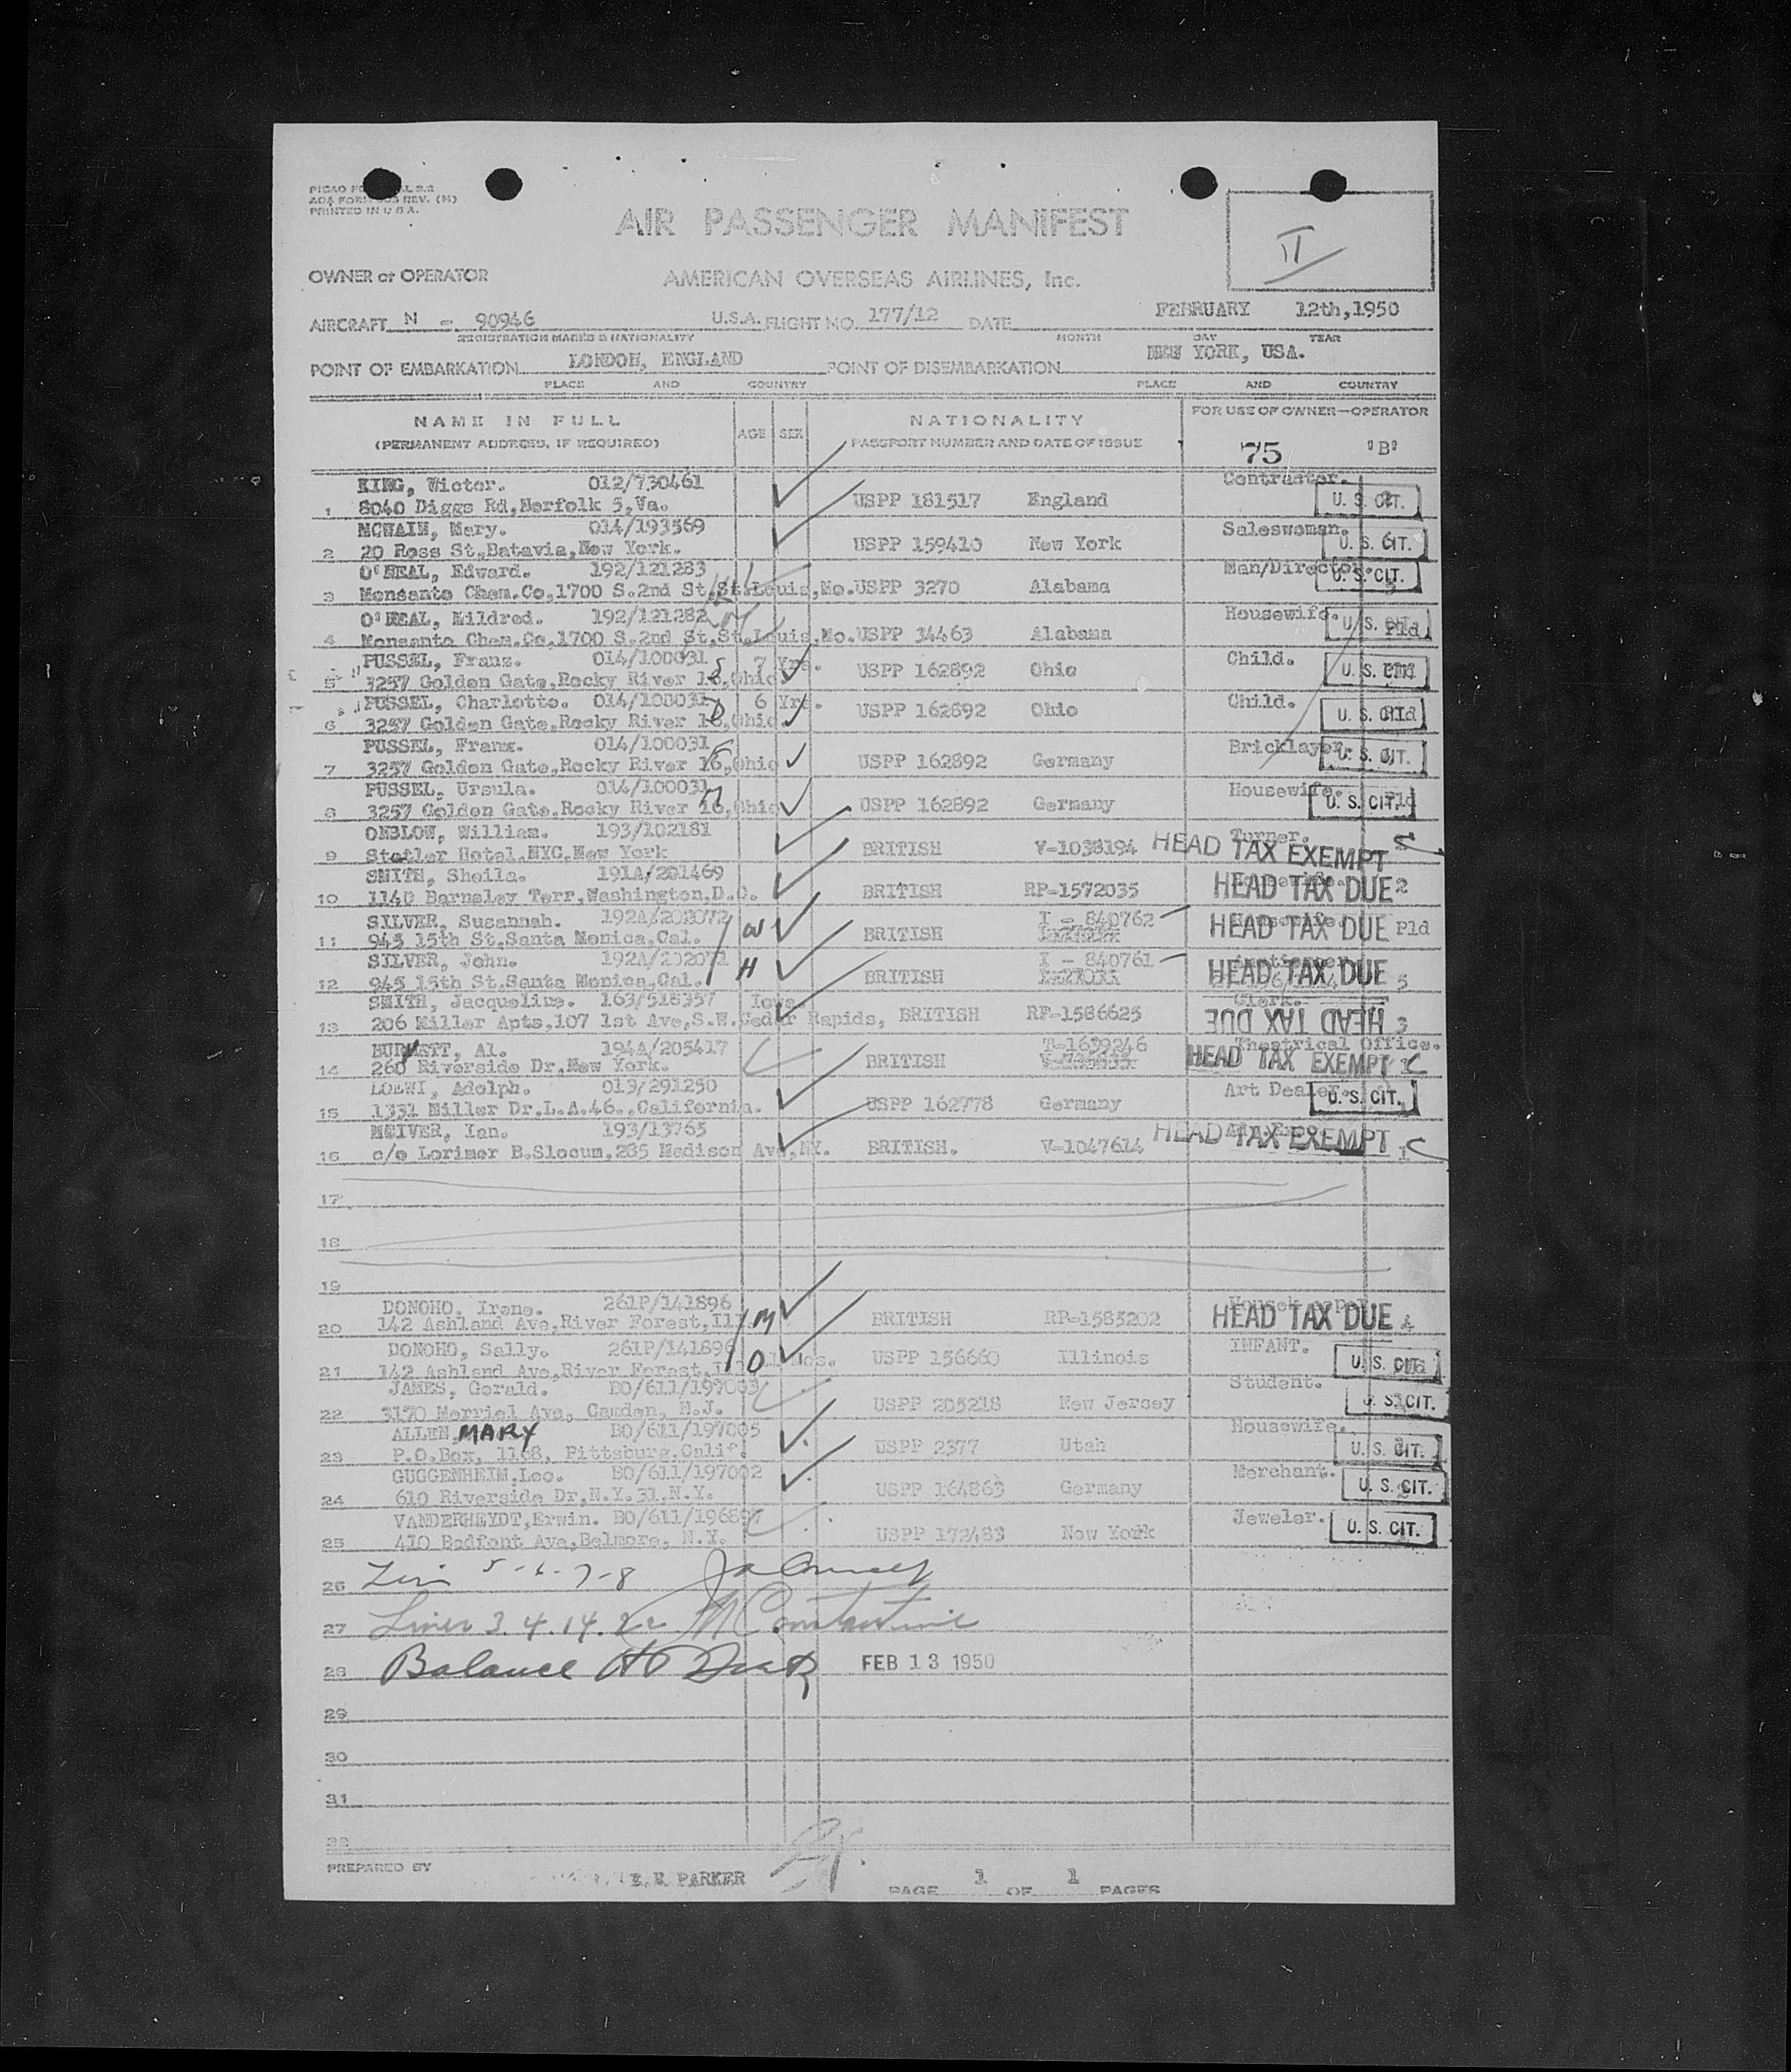 PRINTED IN U S A.
AIR PASSENGER MANIFEST
II
OWNER or OPERATOR AMERICAN OVERSEAS AIRLINES, Inc.
AIRCRAFT N - 90946 U.S.A. FLIGHT NO. 177/12 DATE FEBRUARY 12th,1950
REGISTRATION MARKS & NATIONALITY MONTH DAY YEAR
POINT OF EMBARKATION LONDON, ENGLAND POINT OF DISEMBARKATION NEW YORK, USA.
PLACE AND COUNTRY PLACE AND COUNTRY
NAME IN FULL AGE SEX NATIONALITY FOR USE OF OWNER—OPERATOR
(PERMANENT ADDRESS, IF REQUIRED) PASSPORT NUMBER AND DATE OF ISSUE 75 "B"
KING, Victor. 012/730461 Contractor.
1 8040 Diggs Rd,Norfolk 5,Va. USPP 181517 England U. S. CIT.
MCNAIN, Mary. 014/193569 Saleswoman.
2 20 Ross St,Batavia,New York. USPP 159410 New York U. S. CIT.
O'NEAL, Edward. 192/121283 Man/Director
3 Monsanto Chem.Co,1700 S.2nd St,St.Louis,Mo. USPP 3270 Alabama U. S. CIT.
O'NEAL, Mildred. 192/121282 Housewife.
4 Monsanto Chem.Co,1700 S.2nd St,St.Louis,Mo. USPP 34463 Alabama U. S. CIT. Pld
PUSSEL, Franz. 014/100031 7 Yrs. Child.
5 3257 Golden Gate,Rocky River 16,Ohio USPP 162892 Ohio U. S. CIT.
PUSSEL, Charlotte. 014/100031 6 Yrs. Child.
6 3257 Golden Gate,Rocky River 16,Ohio. USPP 162892 Ohio U. S. CIT. Pld
PUSSEL, Franz. 014/100031 Bricklayer.
7 3257 Golden Gate,Rocky River 16,Ohio USPP 162892 Germany U. S. CIT.
PUSSEL, Ursula. 014/100031 Housewife.
8 3257 Golden Gate,Rocky River 16,Ohio USPP 162892 Germany U. S. CIT. Pld
ONSLOW, William. 193/102181 Turner.
9 Statler Hotel,NYC,New York BRITISH V-1038194 HEAD TAX EXEMPT
SMITH, Sheila. 191A/201469
10 1140 Barnsley Terr,Washington,D.C. BRITISH RP-1572035 HEAD TAX DUE 2
SILVER, Susannah. 192A/202072 I - 840762
11 945 15th St.Santa Monica,Cal. W BRITISH HEAD TAX DUE Pld
SILVER, John. 192A/202071 I - 840761
12 945 15th St.Santa Monica,Cal. H BRITISH HEAD TAX DUE 5
SMITH, Jacqueline. 163/518357 Iowa Clerk.
13 206 Miller Apts,107 1st Ave,S.W.Cedar Rapids, BRITISH RP-1586625 HEAD TAX DUE 3
BURNETT, Al. 194A/205417 T-1639246 Theatrical Office.
14 260 Riverside Dr,New York. BRITISH HEAD TAX EXEMPT
LOEWI, Adolph. 013/291250 Art Dealer.
15 1331 Miller Dr.L.A.46.,California. USPP 162778 Germany U. S. CIT.
MCIVER, Ian. 193/13765
16 c/o Lorimer B.Slocum,285 Madison Ave,NY. BRITISH. V-1047614 HEAD TAX EXEMPT
17
18
19
DONOHO, Irene. 261P/141896
20 142 Ashland Ave,River Forest,Ill. M BRITISH RP-1585202 HEAD TAX DUE 4
DONOHO, Sally. 261P/141896 INFANT.
21 142 Ashland Ave,River Forest, D Mos. USPP 156660 Illinois U. S. CIT.
JAMES, Gerald. BO/611/197003 Student.
22 3170 Merriel Ave, Camden, N.J. USPP 205218 New Jersey U. S. CIT.
ALLEN, MARY BO/611/197005 Housewife.
23 P.O.Box, 1168, Pittsburg.Calif. USPP 2377 Utah U. S. CIT.
GUGGENHEIM,Leo. BO/611/197002 Merchant.
24 610 Riverside Dr,N.Y.31,N.Y. USPP 164863 Germany U. S. CIT.
VANDERHEYDT,Erwin. BO/611/196897 Jeweler.
25 410 Bedfont Ave,Belmore, N.Y. USPP 172483 New York U. S. CIT.
26 5-6-7-8
27 Lines 3.4.14.22
28 Balance FEB 13 1950
29
30
31
32
PREPARED BY E. E. PARKER PAGE 1 OF 1 PAGES